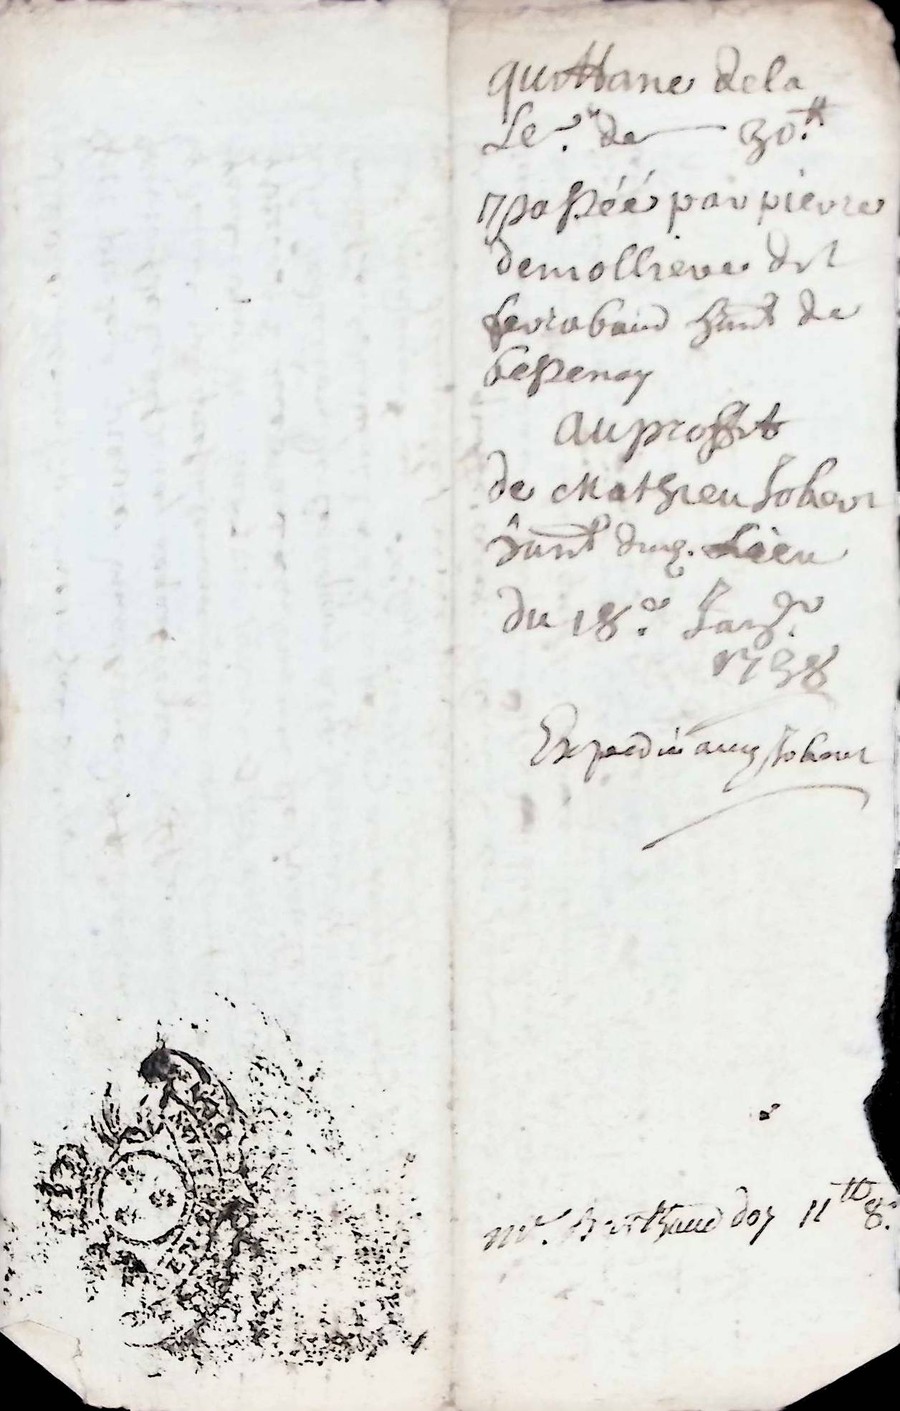 quittance de la
de 30.tt
passéé par pierre
demolliere dit
habant de
bessenay
au proffit
de Mathieu Joben
habant dud. Lieu
du 18.e Janv.r
1738
Expedié aud Joben
m.e Berthaud doy 11tt 8.